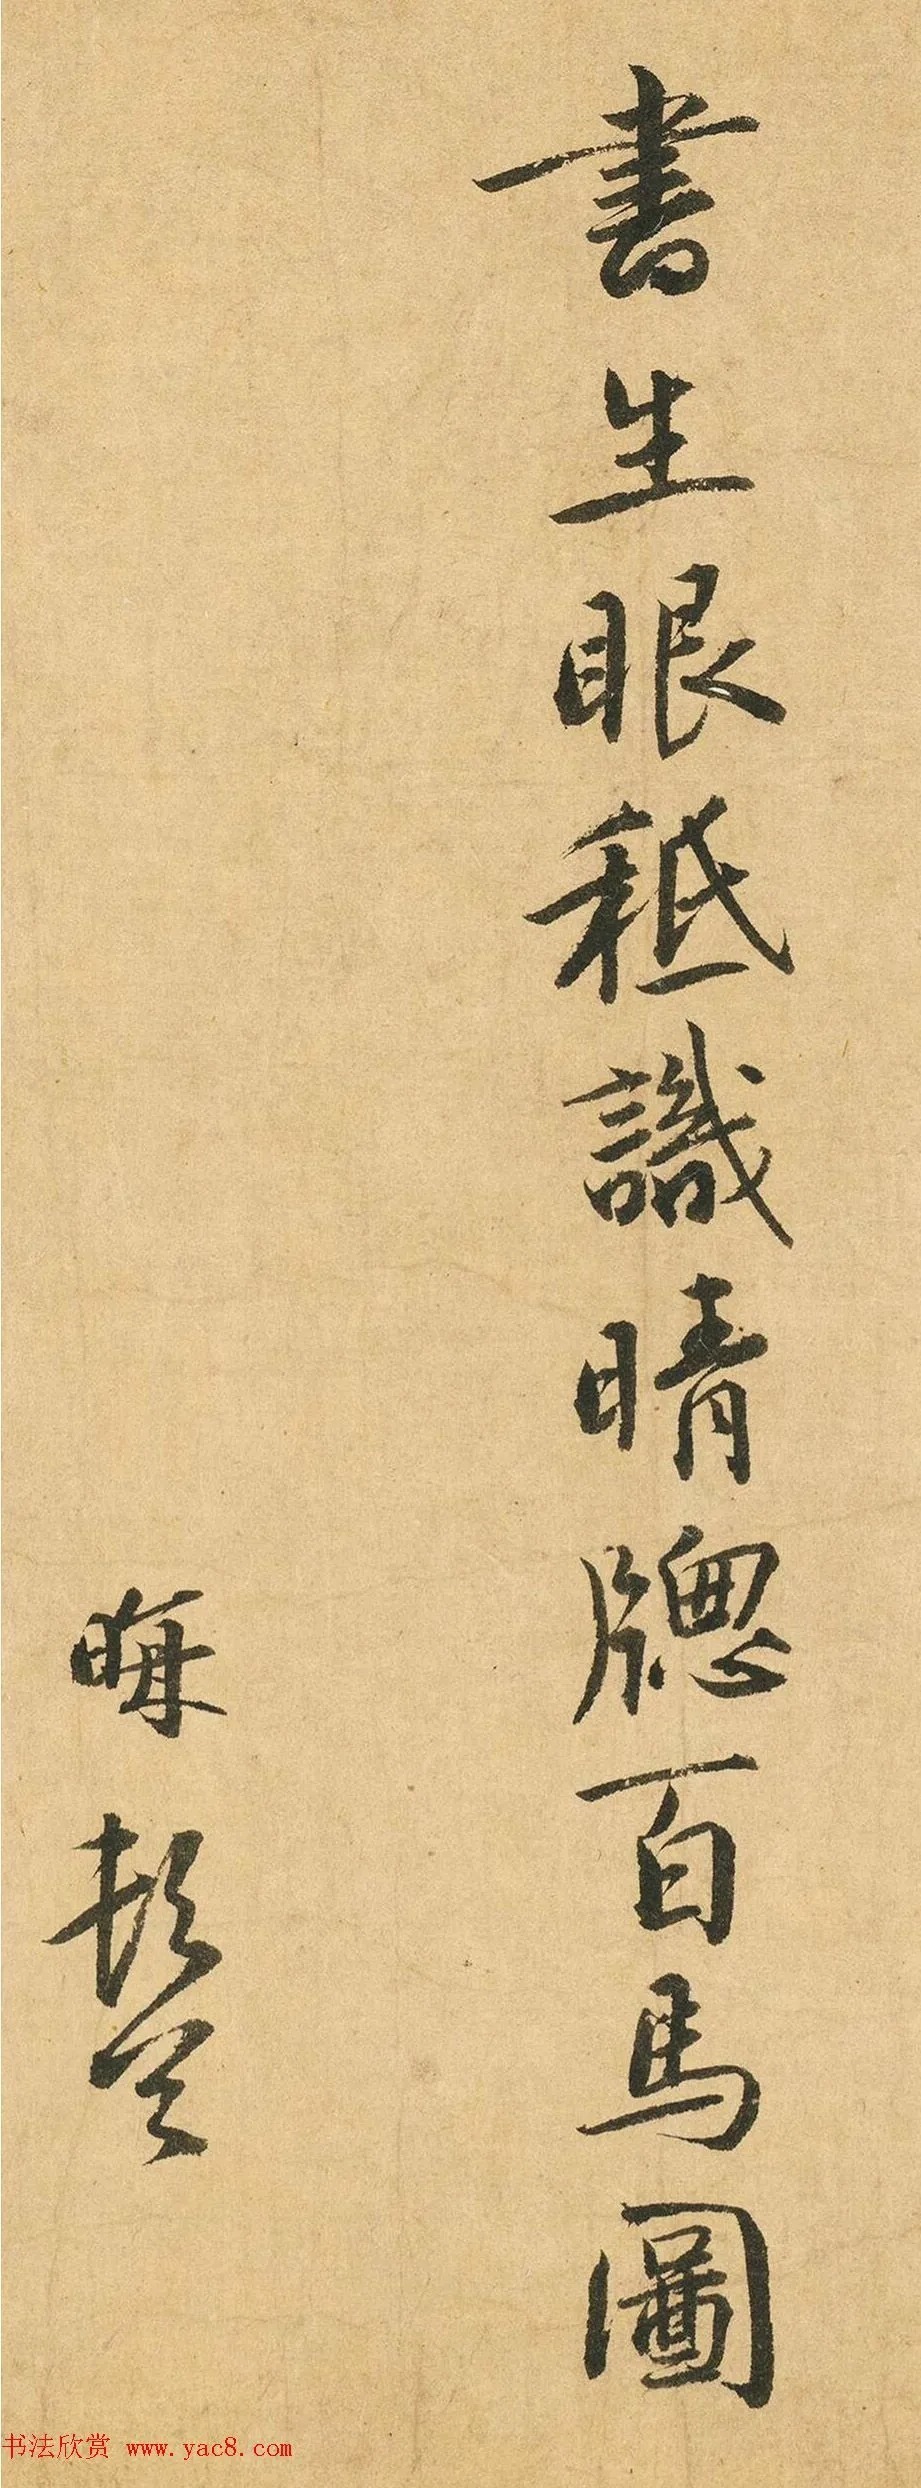 書生眼秪識晴牕百馬圖
晦頓首
书法欣赏 www.yac8.com